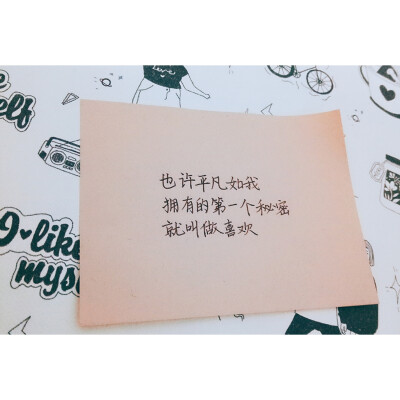 也许平凡如我
拥有的第一个秘密
就叫做喜欢
elf
I like
mys